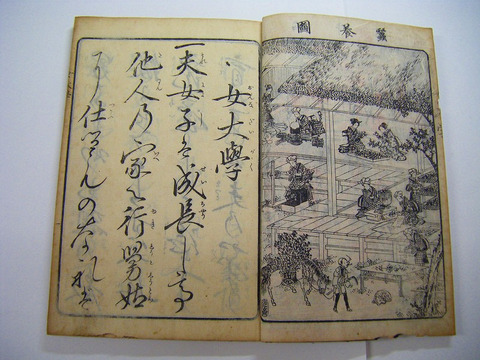 蠶養圖
女大學
一夫女子は成長して
他人乃家へ行舅姑
に仕るものなれば